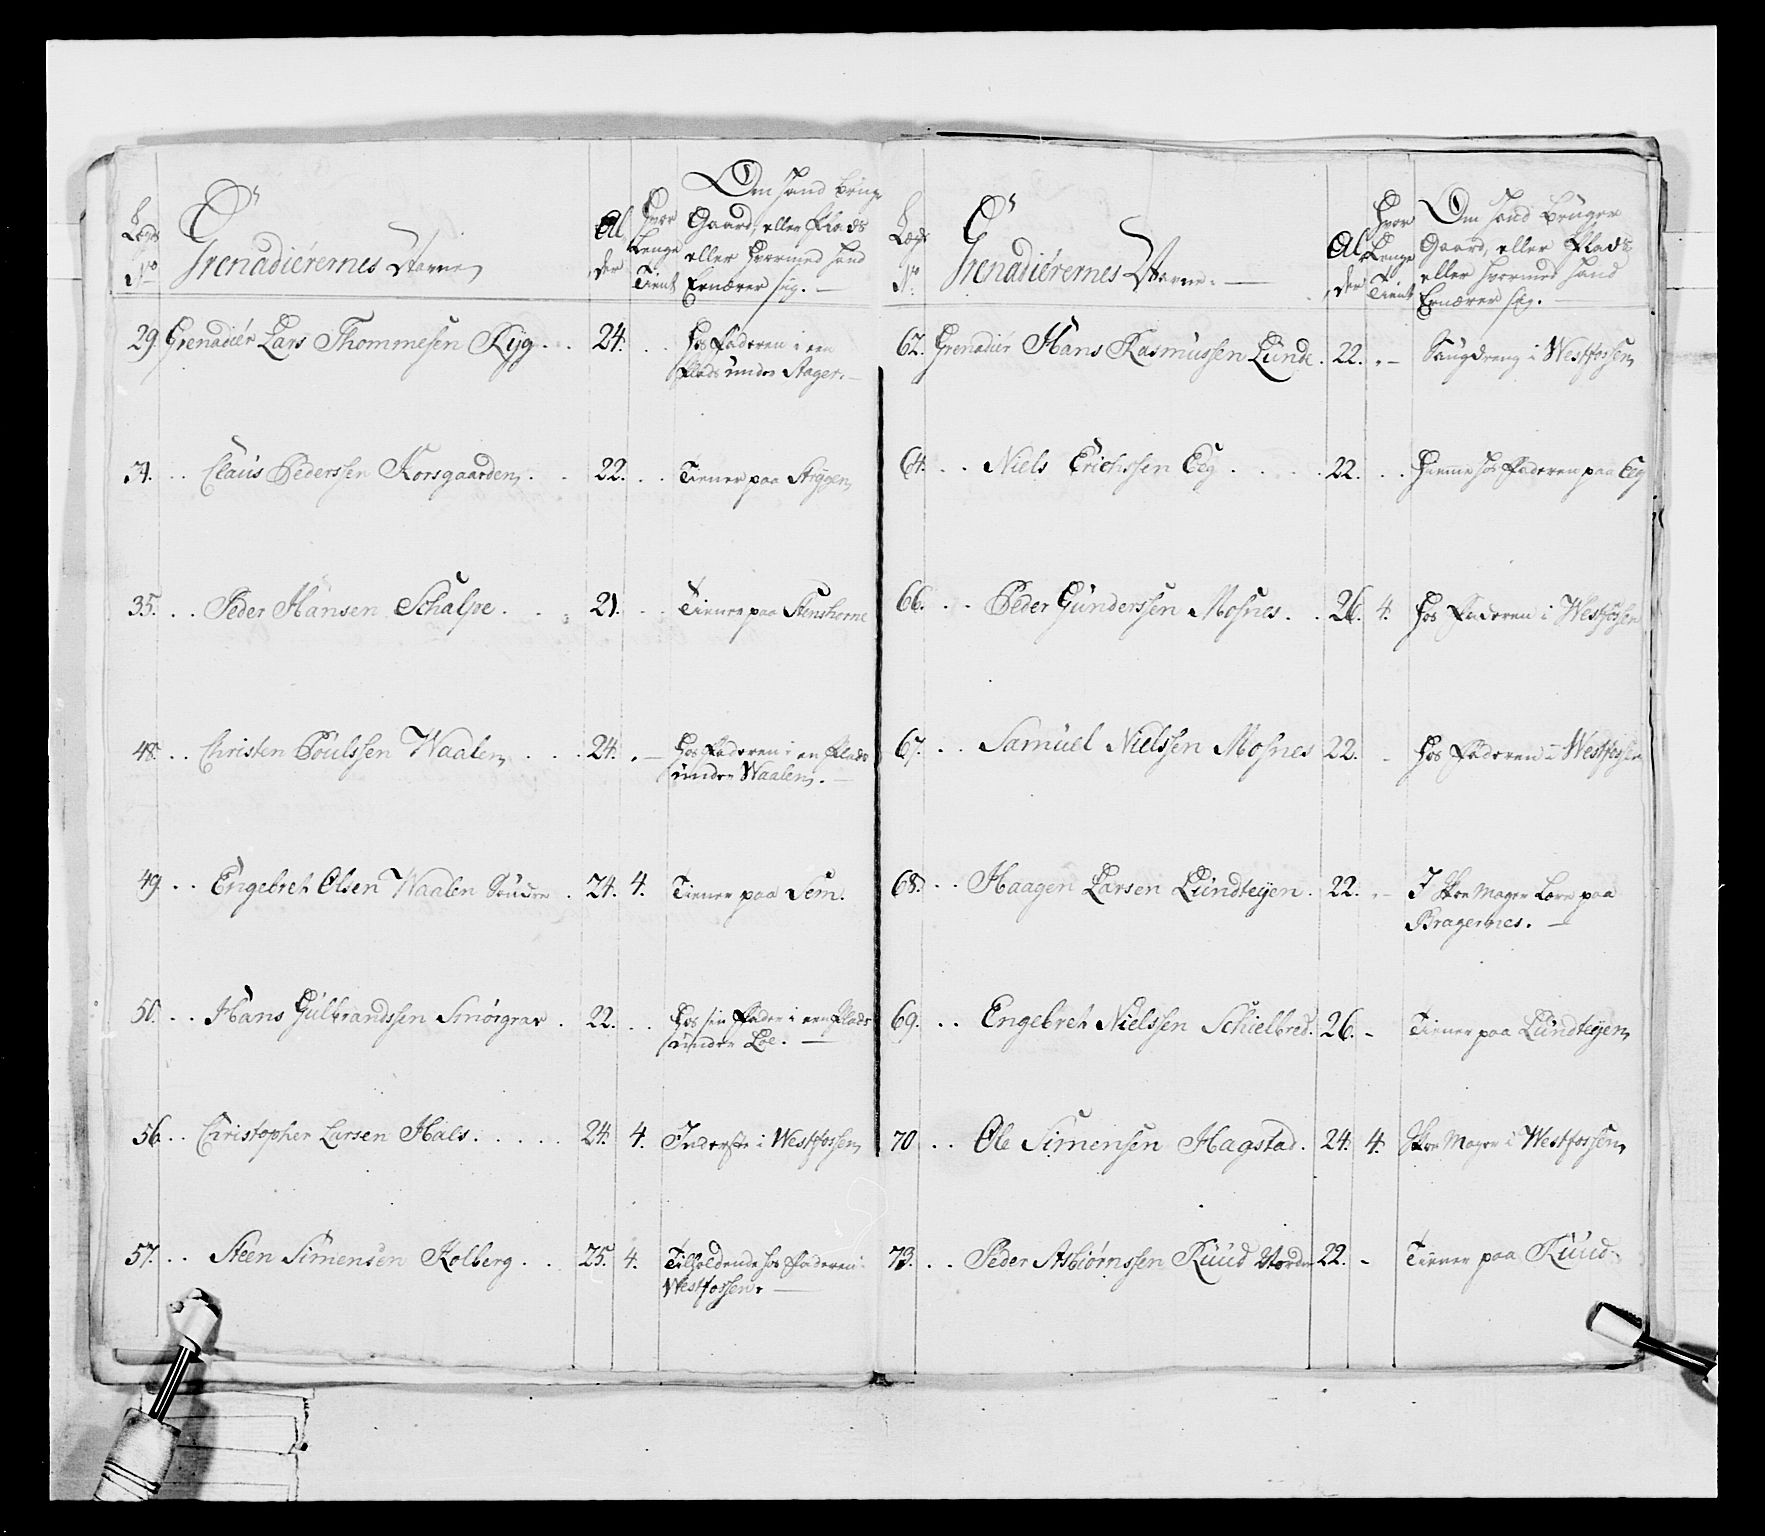 Om hand bruger
Lægs No Grenadiérernes Nafne Alder Hvor Længe Tient Gaard, eller Plads
eller hvormed hand
Ernærer sig. —
29. Grenadiér Lars Thommesen Ryg . . 24. . . hos Faderen i een
Plads under Stager. —
31. . . Claus Pederssen Korsgaarden . . 22. . . Tiener paa Stryjen
35. . . Peder Hansen Schalsve . . 21. . . Tiener paa Stenshorne
48. . . Christen Poulssen Waalen . . . 24. . — hos Faderen i en Plads
under Waalen. —
49. . . Engebret Olsen Waalen Søndre . 24. 4. Tiener paa Sem.
50. . . Hans Gulbrandssen Smörgrav . 22. . . hos sin Fader i een Plads
under Loe. —
56. . . Christopher Larsen Hals . . . . . 24. 4. Inderste i Westfossen
57. . . Steen Simensen Kolberg . . 25. 4. Tilholdende hos Faderen i
Westfossen. —
Lægs No. Grenadiérernes Nafne. — Alder Hvor Længe Tient Om hand bruger
Gaard, eller Plads
eller hvormed hand
Ernærer sig. —
62. Grenadiér Hans Rasmussen Lunde . 22. . — Saugdreng i Westfossen
64. . . Niels Erichssen Eeg . . . . 22. . . hiemme hos Faderen paa Eeg
66. . . Peder Gunderssen Mosnes . . 26. 4. hos Faderen i Westfossen
67. . . Samuel Nielssen Mosnes 22. - hos Faderen i Westfossen
68. . . Haagen Larsen Lundteyen . 22. . - I Skoe Mager Lære paa
Bragernes. —
69. . . Engebret Nielssen Schielbred. 26. - Tiener paa Lundteyen
70 . . Ole Simensen Hagstad. 24. 4. Skoe Mager i Westfossen
73. . . Peder Asbiørnssen Ruud Nordre 22. - Tiener paa Ruud.